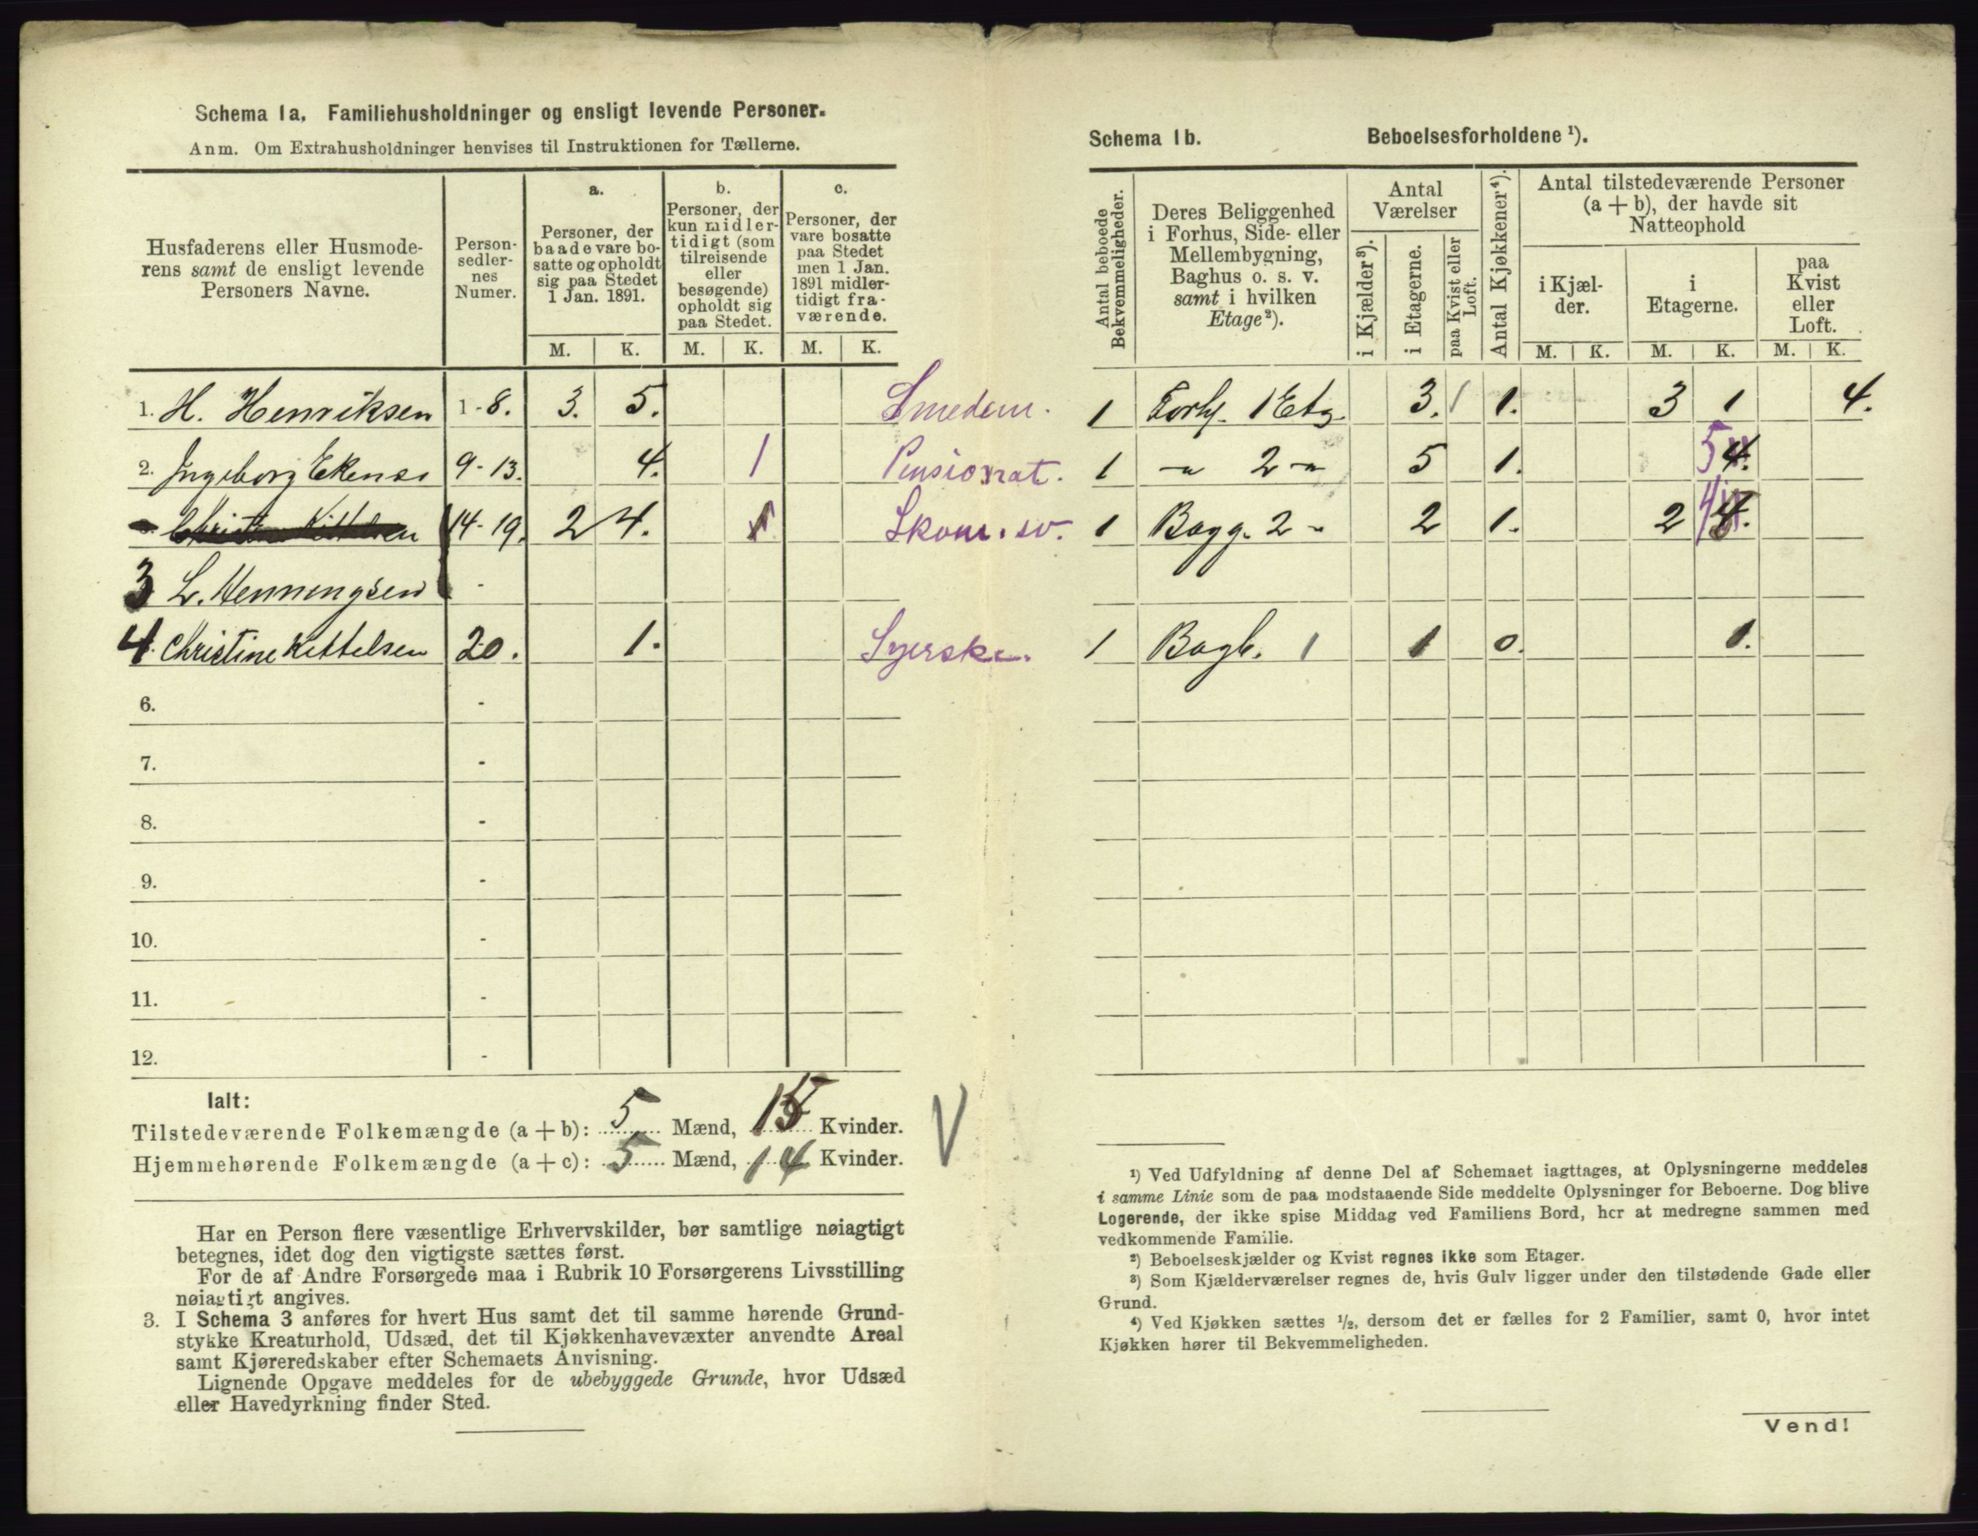 Schema 1a. Familiehusholdninger og ensligt levende Personer.
Anm. Om Extrahusholdninger henvises til Instruktionen for Tællerne.
Husfaderens eller Husmoderens samt de ensligt levende Personers Navne.
Personsedlernes Numer.
a.
Personer, der baade vare bosatte og opholdt sig paa Stedet 1 Jan. 1891.
b.
Personer, der kun midlertidigt (som tilreisende eller besøgende) opholdt sig paa Stedet.
c.
Personer, der vare bosatte paa Stedet men 1 Jan. 1891 midlertidigt fraværende.
M. K. M. K. M. K.
1. H. Henriksen 1-8. 3. 5. Smedem.
2. Ingeborg 9-13. 4. 1 Pensionat.
14-19. 2 4. Skom. sv.
3 L. Henningsen -
4. Christine Kittelsen 20. 1. Syerske.
6. -
7. -
8. -
9. -
10. -
11. -
12. -
Ialt:
Tilstedeværende Folkemængde (a + b): 5 Mænd, 15 Kvinder.
Hjemmehørende Folkemængde (a + c): 5 Mænd, 14 Kvinder.
V
Har en Person flere væsentlige Erhvervskilder, bør samtlige nøiagtigt
betegnes, idet dog den vigtigste sættes først.
For de af Andre Forsørgede maa i Rubrik 10 Forsørgerens Livsstilling
nøiagtigt angives.
3. I Schema 3 anføres for hvert Hus samt det til samme hørende Grund-
stykke Kreaturhold, Udsæd, det til Kjøkkenhavevæxter anvendte Areal
samt Kjøreredskaber efter Schemaets Anvisning.
Lignende Opgave meddeles for de ubebyggede Grunde, hvor Udsæd
eller Havedyrkning finder Sted.
Schema 1b. Beboelsesforholdene ¹).
Antal beboede Bekvemmeligheder.
Deres Beliggenhed i Forhus, Side- eller Mellembygning, Baghus o. s. v. samt i hvilken Etage²).
Antal Værelser
i Kjælder³).
i Etagerne.
paa Kvist eller Loft.
Antal Kjøkkener⁴).
Antal tilstedeværende Personer (a + b), der havde sit Natteophold
i Kjælder.
i Etagerne.
paa Kvist eller Loft.
M. K. M. K. M. K.
1 Forh. 1 Etg. 3. 1 1. 3 1 4.
1 -"- 2 -"- 5 1. 5
1 Bagg. 2 - 2 1. 2 4
1 Bagb. 1 1 0. 1.
¹) Ved Udfyldning af denne Del af Schemaet iagttages, at Oplysningerne meddeles
i samme Linie som de paa modstaaende Side meddelte Oplysninger for Beboerne. Dog blive
Logerende, der ikke spise Middag ved Familiens Bord, her at medregne sammen med
vedkommende Familie.
²) Beboelseskjælder og Kvist regnes ikke som Etager.
³) Som Kjælderværelser regnes de, hvis Gulv ligger under den tilstødende Gade eller
Grund.
⁴) Ved Kjøkken sættes ½, dersom det er fælles for 2 Familier, samt 0, hvor intet
Kjøkken hører til Bekvemmeligheden.
Vend!